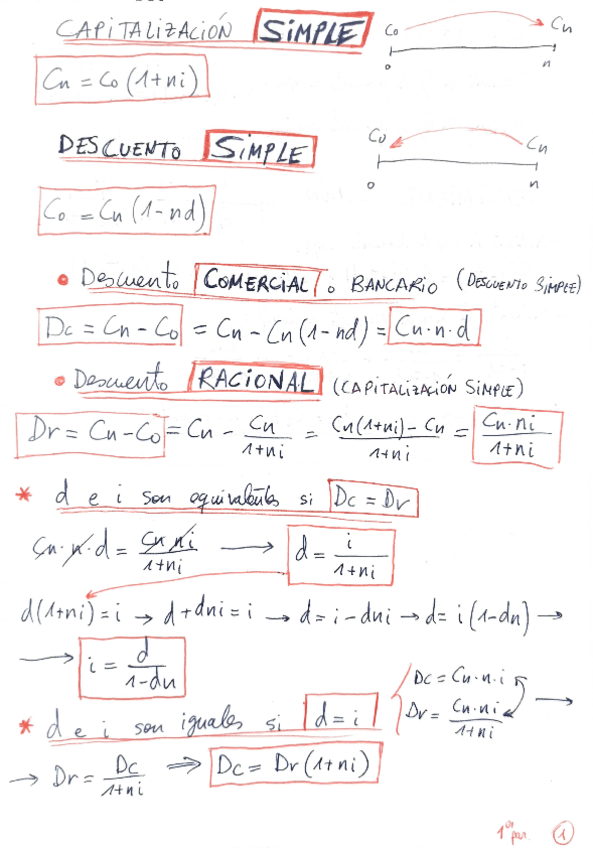 CAPITALIZACIÓN SIMPLE
Co Cn
o n
Cn = Co (1+ni)
DESCUENTO SIMPLE
Co Cn
o n
Co = Cn (1-nd)
• Descuento COMERCIAL o BANCARIO (DESCUENTO SIMPLE)
Dc = Cn - Co = Cn - Cn (1-nd) = Cn·n·d
• Descuento RACIONAL (CAPITALIZACIÓN SIMPLE)
Dr = Cn - Co = Cn - Cn/(1+ni) = (Cn(1+ni) - Cn)/(1+ni) = (Cn·ni)/(1+ni)
* d e i son equivalentes si Dc = Dr
Cn·n·d = (Cn ni)/(1+ni) → d = i/(1+ni)
d(1+ni) = i → d + dni = i → d = i - dni → d = i (1-dn) →
→ i = d/(1-dn)
* d e i son iguales si d = i
Dc = Cn·n·i
Dr = (Cn·ni)/(1+ni) →
→ Dr = Dc/(1+ni) ⇒ Dc = Dr (1+ni)
1er par. 1